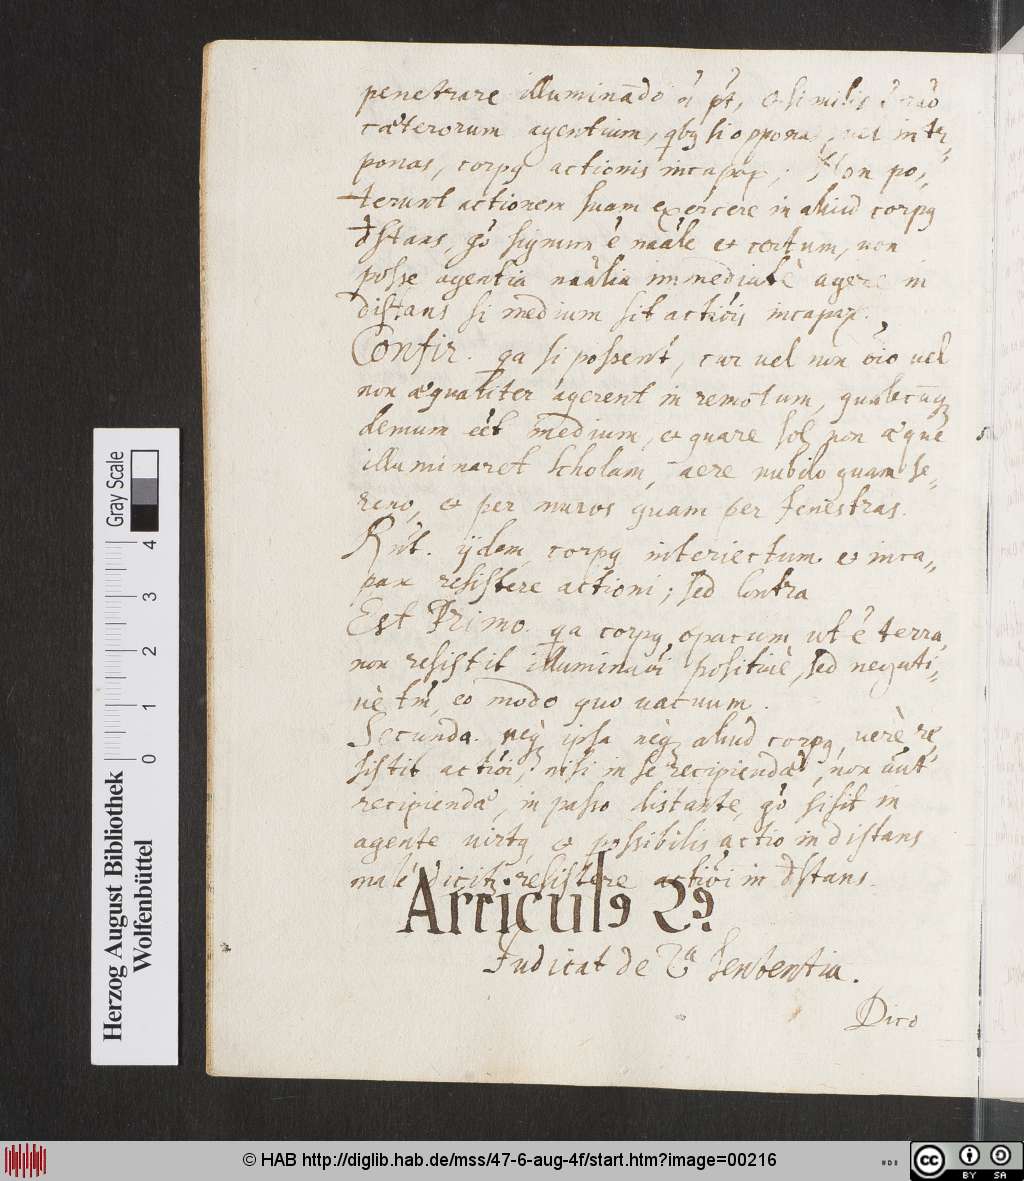 penetrare illuminādo ñ pt, & similis ē rāo
cæterorum agentium, qbꝯ si opponas, vel intr-
ponas, corpꝯ actionis incapax; Non po-
terunt actionem suam exercere in aliud corpꝯ
dstans, gō signum ē naāle et certum, non
posse agentia naālia immediatè agere in
distans si medium sit actiōis incapax.
Confir. qa si possent, cur vel non oīo vel
non æqualiter agerent in remotum, qualecūqꝫ
demum eēt medium, & quare sol non æque
illuminaret scholam, aere nubilo quam se-
reno, & per muros quam per fenestras.
Rñt. ijdem, corpꝯ interiectum & inca-
pax resistere actioni; sed Contra
Est Primo. qa corpꝯ opacum ut ē terra
non resistit illuminaōi positivè, sed negati-
vè tm̄, eo modo quo vacuum.
Secunda. neqꝫ ipsa neqꝫ aliud corpꝯ, verè re-
sistit actiōi, nisi in se recipiendæ non aūt
recipiendæ, in passo distante, gō si sit in
agente virtꝯ, & possibilis actio in distans
malè dicitr resistere actiōi in dstans.
Articulꝯ 2ꝯ.
Iudicat de 2a sententia.
Dico
Herzog August Bibliothek
Wolfenbüttel
0 1 2 3 4
Gray Scale
© HAB http://diglib.hab.de/mss/47-6-aug-4f/start.htm?image=00216
cc BY SA